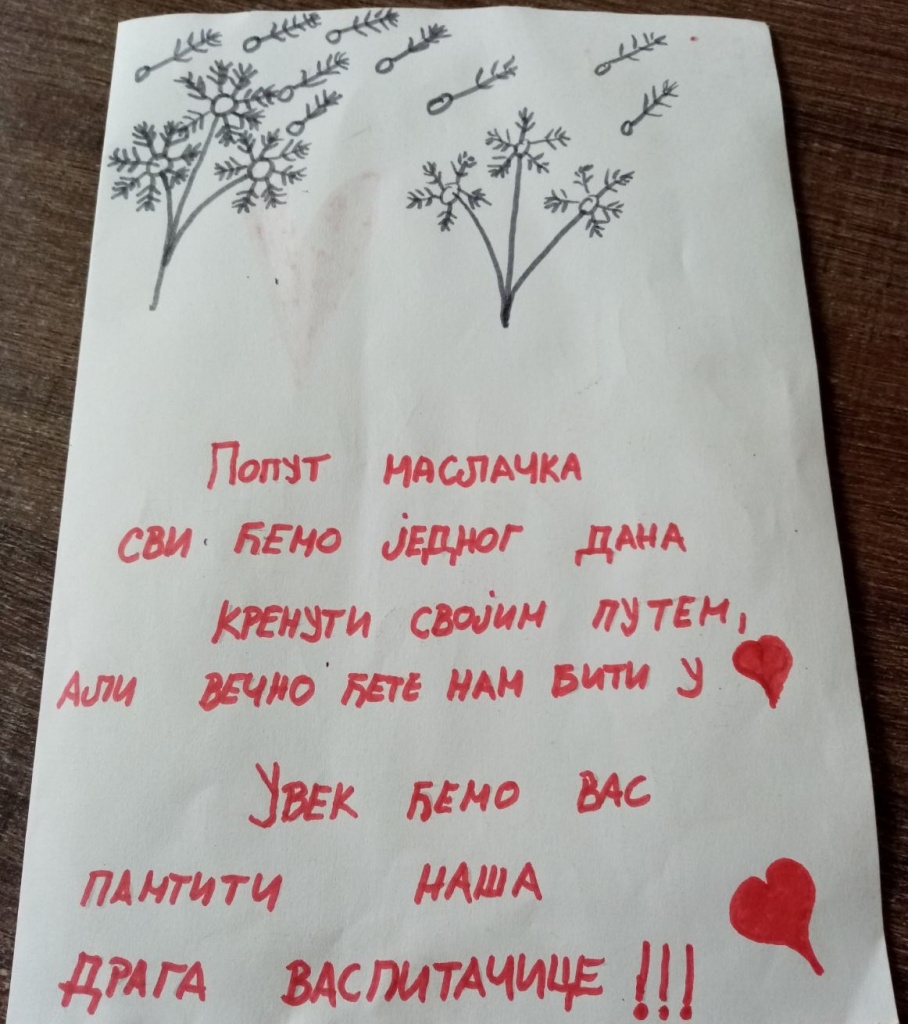 Попут маслачка
сви ћемо једног дана
кренути својим путем,
Али вечно ћете нам бити у
Увек ћемо вас
памтити наша
драга васпитачице!!!